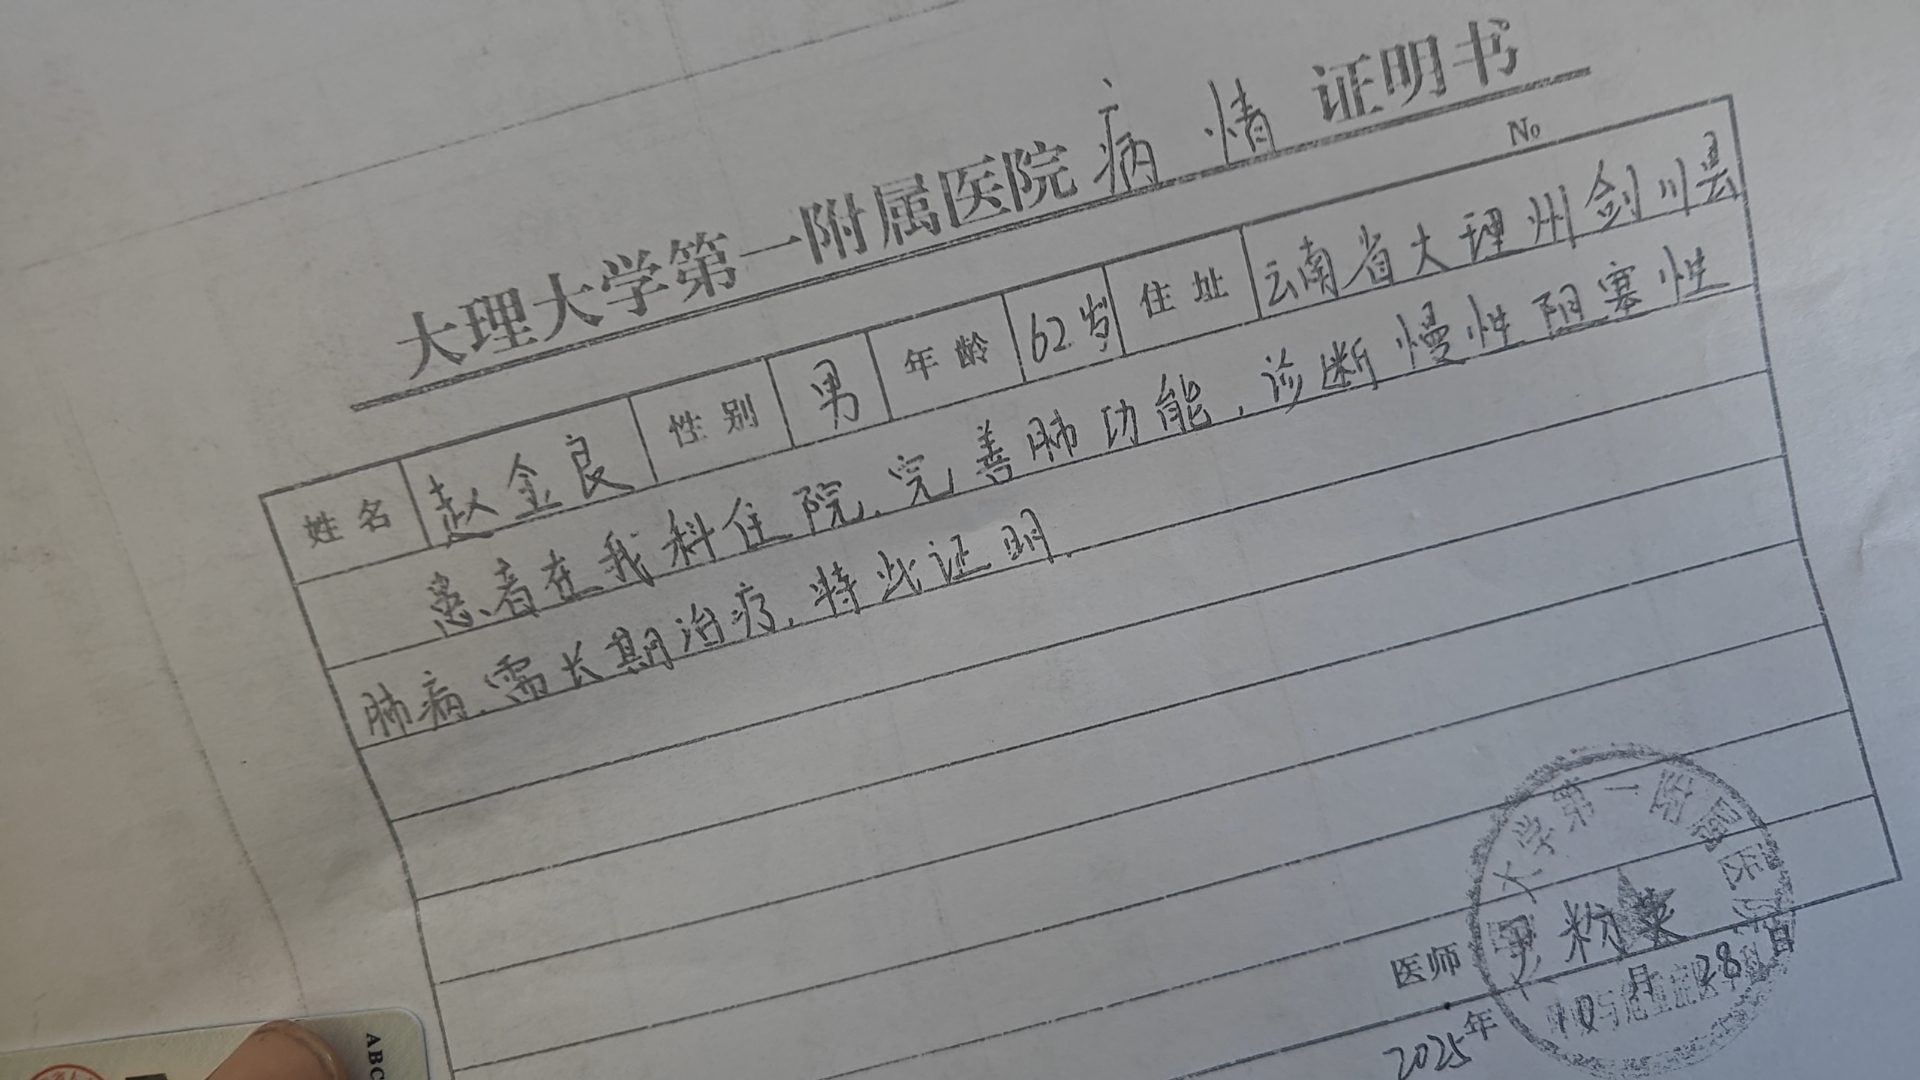 大理大学第一附属医院病情证明书
No
姓名 赵金良 性别 男 年龄 62岁 住址 云南省大理州剑川县
患者在我科住院,完善肺功能,诊断慢性阻塞性
肺病,需长期治疗,特此证明.
大学第一附属医院
医师
2025年10月28日
ABC